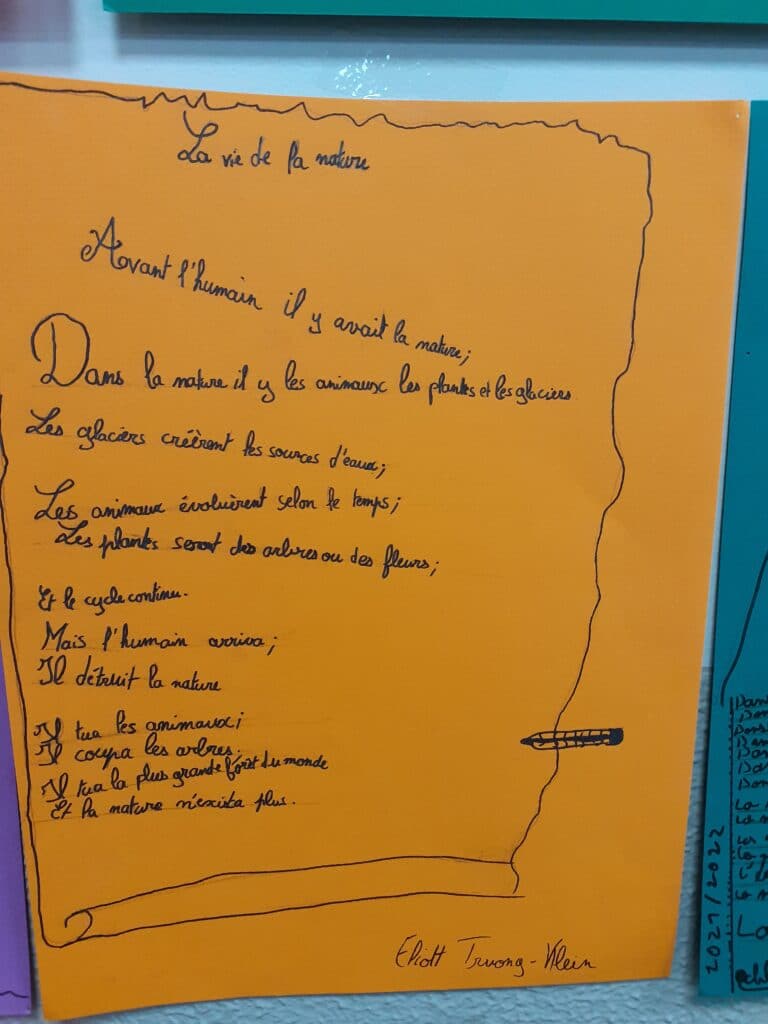 La vie de la nature
Avant l'humain il y avait la nature;
Dans la nature il y les animaux les plantes et les glaciers
Les glaciers créèrent les sources d'eaux;
Les animaux évoluèrent selon le temps;
Les plantes seront des arbres ou des fleurs;
Et le cycle continu.
Mais l'humain arriva;
Il détruit la nature
Il tua les animaux;
Il coupa les arbres;
Il tua la plus grande forêt du monde
Et la nature n'exista plus.
Eliott Truong-Klein
2021/2022